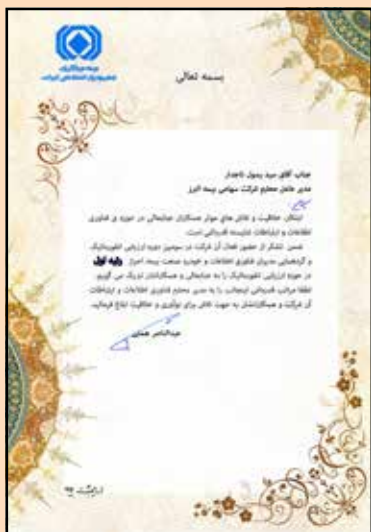 بیمه مرکزی
جمهوری اسلامی ایران
بسمه تعالی
جناب آقای سید رسول تاجدار
مدیر عامل محترم شرکت سهامی بیمه البرز
ابتکار، خلاقیت و تلاش های موثر همکاران جنابعالی در حوزه ی فناوری
اطلاعات و ارتباطات شایسته قدردانی است.
ضمن تشکر از حضور فعال آن شرکت در سومین دوره ارزیابی انفورماتیک
و گردهمایی مدیران فناوری اطلاعات و خودرو صنعت بیمه احراز رتبه اول
در حوزه ارزیابی انفورماتیک را به جنابعالی و همکارانتان تبریک می گویم.
لطفا مراتب قدردانی اینجانب را به مدیر محترم فناوری اطلاعات و ارتباطات
آن شرکت و همکارانشان به جهت تلاش برای نوآوری و خلاقیت ابلاغ فرمائید.
عبدالناصر همتی